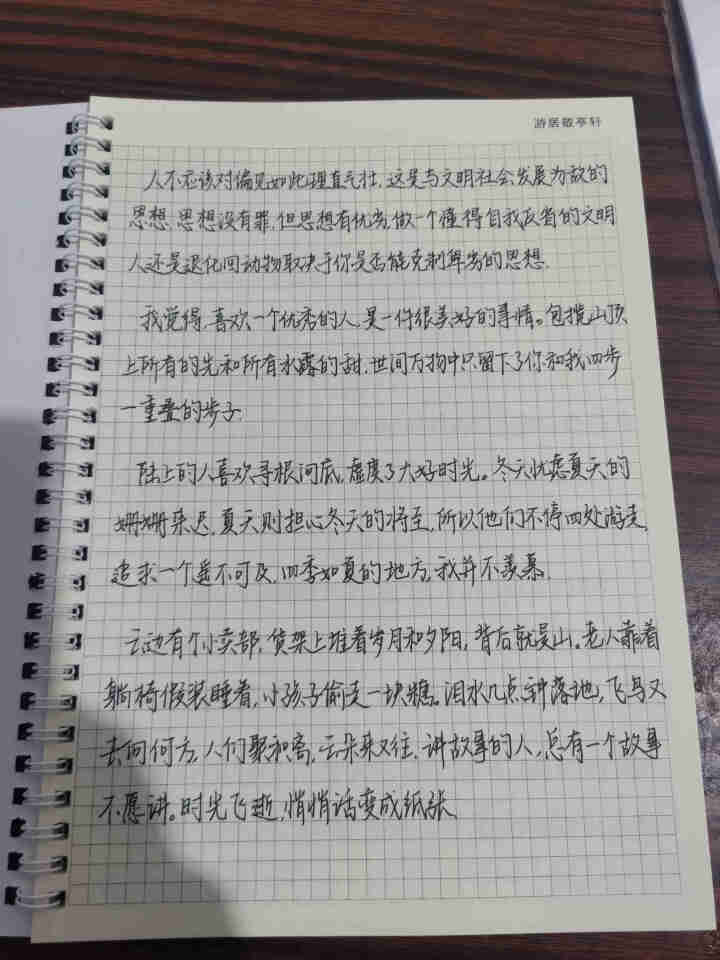 游居敬亭轩
人不应该对偏见如此理直气壮，这是与文明社会发展为敌的
思想，思想没有罪，但思想有优劣，做一个懂得自我反省的文明
人还是退化回动物取决于你是否能克制卑劣的思想。
我觉得，喜欢一个优秀的人，是一件很美好的事情。包揽山顶
上所有的光和所有水露的甜，世间万物中只留下了你和我四步
一重叠的步子。
陆上的人喜欢寻根问底，虚度了大好时光。冬天忧虑夏天的
姗姗来迟，夏天则担心冬天的将至，所以他们不停四处游走，
追求一个遥不可及，四季如夏的地方，我并不羡慕。
云边有个小卖部，货架上堆着岁月和夕阳，背后就是山。老人靠着
躺椅假装睡着，小孩子偷走一块糖。泪水几点钟落地，飞鸟又
去向何方，人们聚和离，云朵来又往，讲故事的人，总有一个故事
不愿讲。时光飞逝，悄悄话变成纸张。